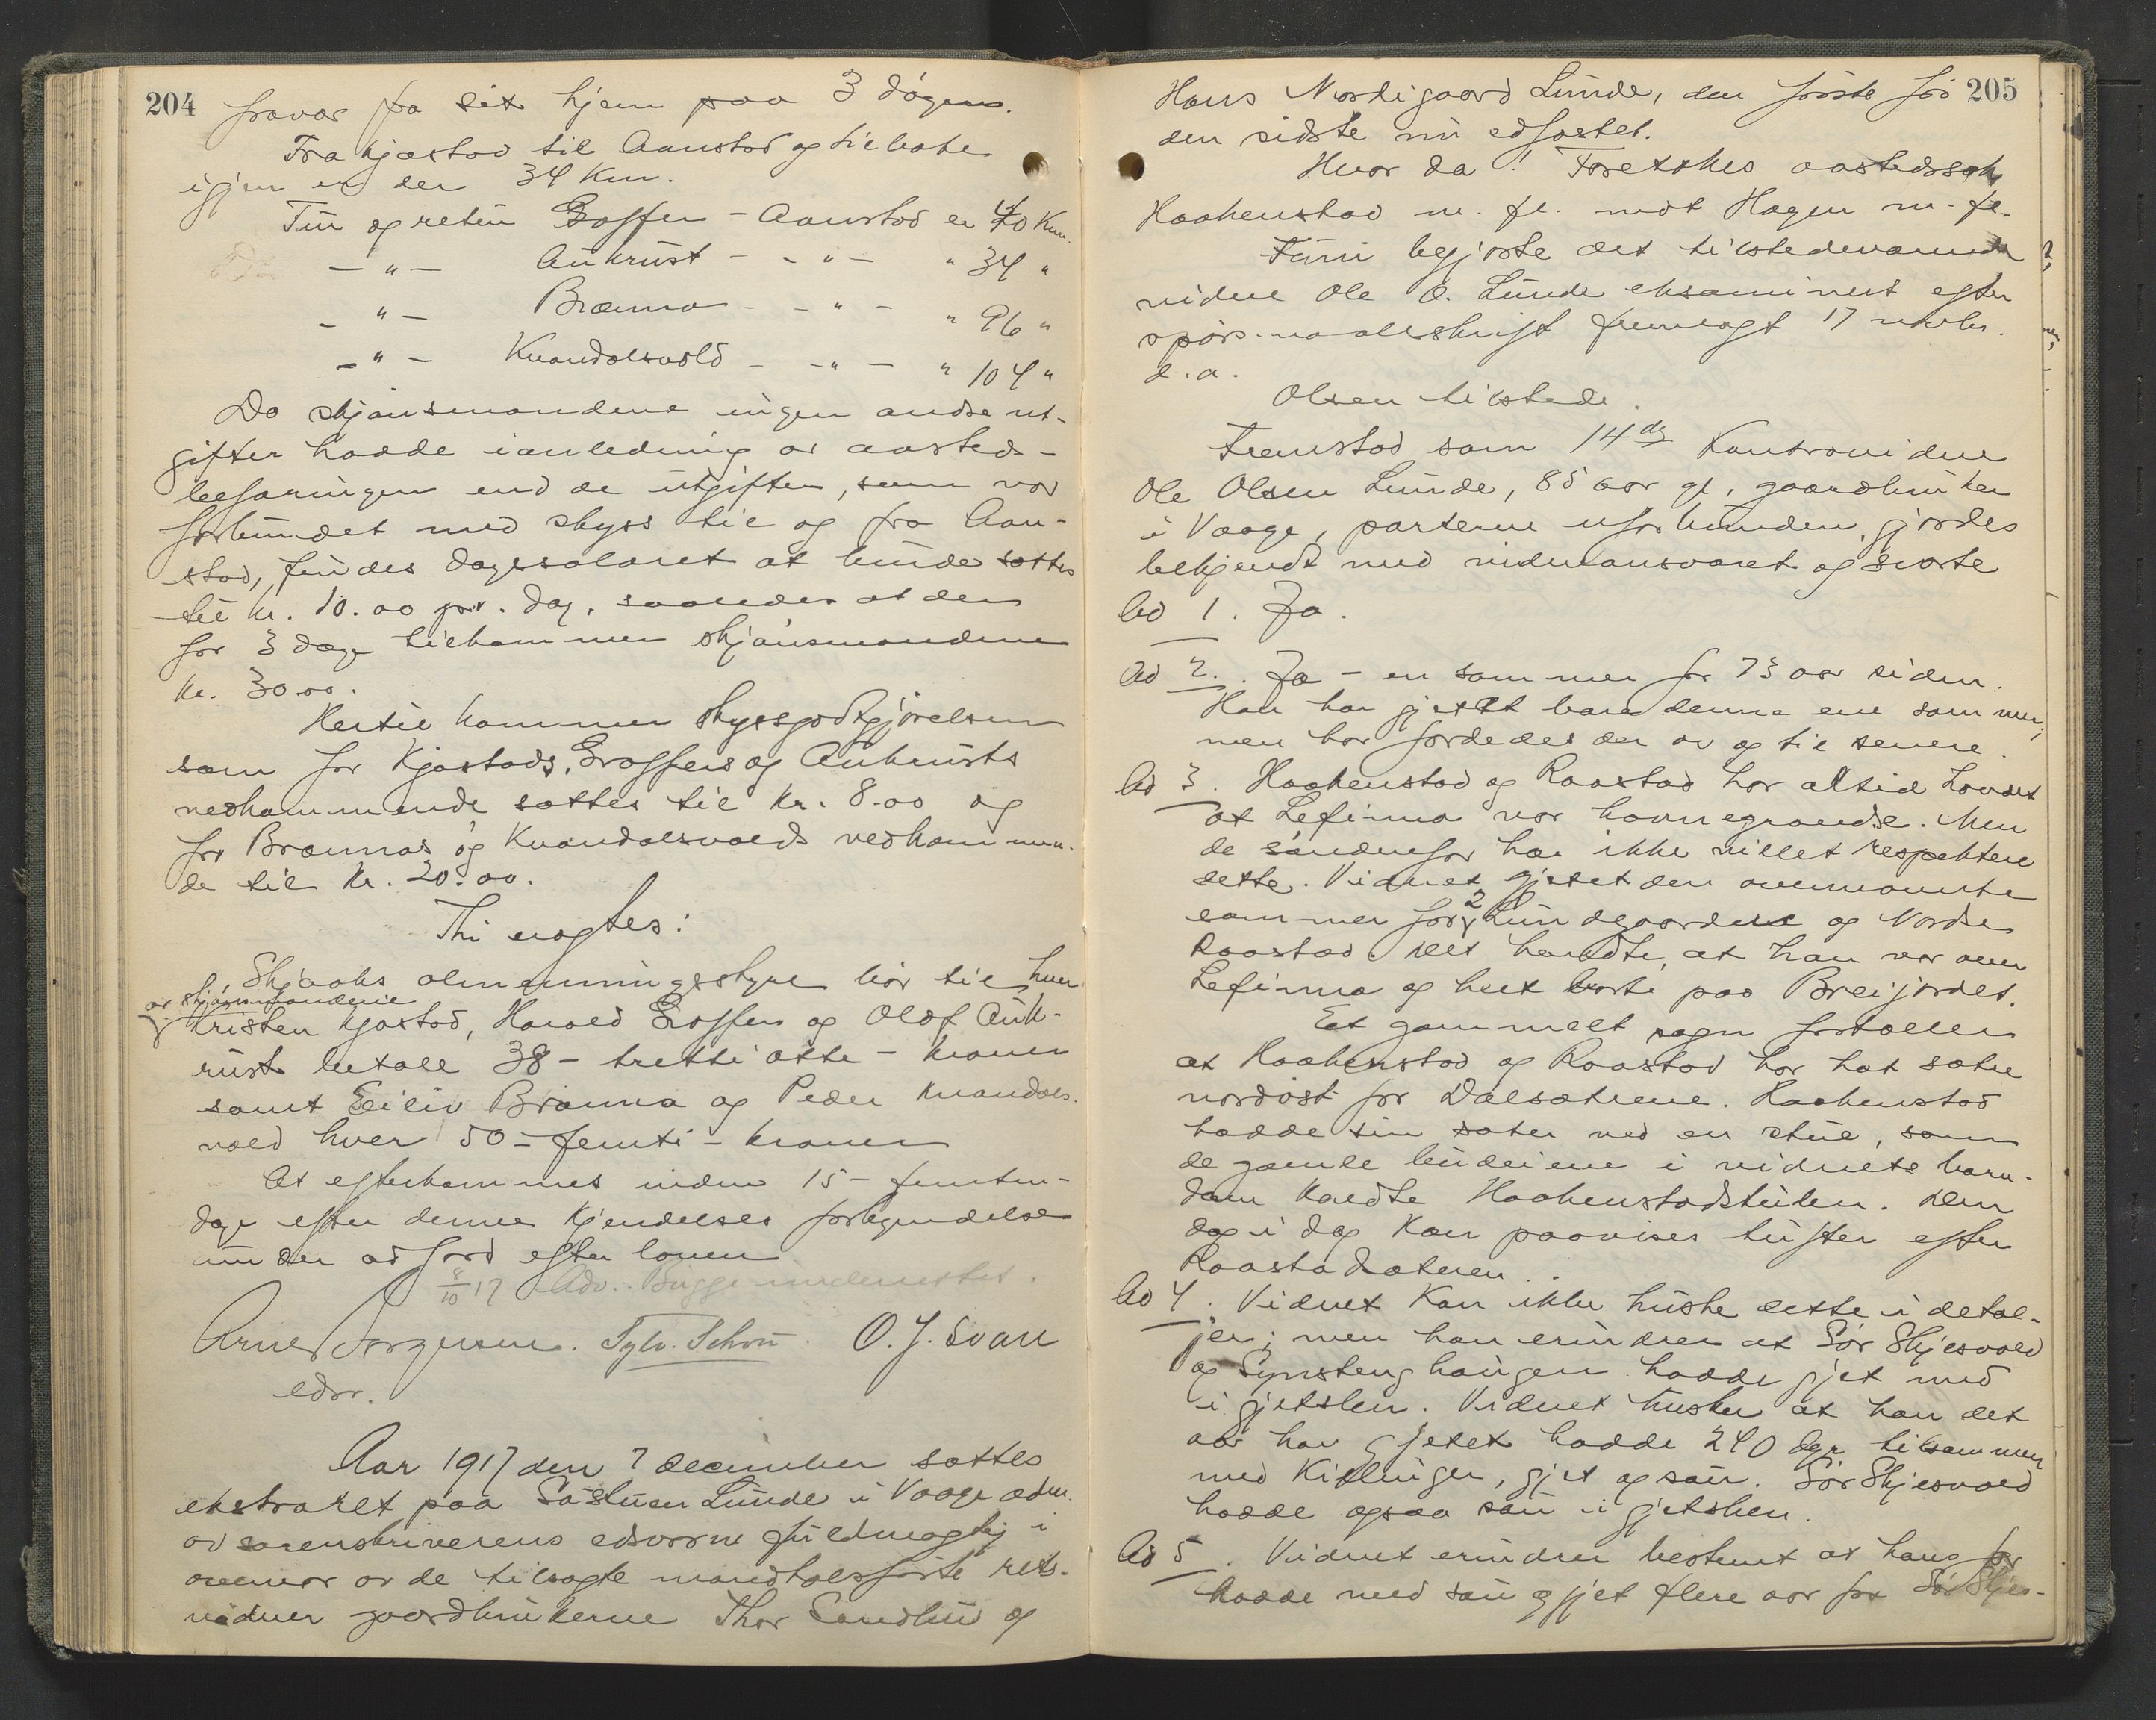 204
fravær fra sit hjem paa 3 døgn.
Fra Kjæstad til Aanstad og tilbake
igjen er der 34 Km.
Tur og retur Graffer - Aanstad er 40 Km.
- " - Aukrust - - " - " 34 "
- " - Brænna - - " - " 96 "
- " - Kvandalsvold - - " - " 104 "
Da skjønsmændene ingen andre ut-
gifter hadde i anledning av aasteds-
befaringen end de utgifter, som var
forbundet med skyss til og fra Aan-
stad, findes dagsalæret at burde sættes
til kr. 10.00 pr. dag, saaledes at der
for 3 dage tilkommer skjønsmændene
kr. 30.00.
Hertil kommer skyssgodtgjørelsen
som for Kjæstads, Graffers og Aukrusts
vedkommende sættes til kr. 8.00 og
for Brænnas og Kvandalsvolds vedkommen-
de til kr. 20.00.
Thi eragtes:
Skjaaks almenningsstyre bør til hver
av skjønsmændene
Kristen Kjæstad, Harald Graffer og Olaf Auk-
rust betale 38 - tretti otte - kroner
samt Eiliv Brænna og Peder Kvandals-
vold hver 50 - femti - kroner
At efterkommes inden 15 - femten -
dage efter denne kjendelses forkyndelse
under adfærd efter loven
8/10 17 Adv. Bugge underrettet.
Arne Jørgensen. Sylv. Schou. O. J. Svare
edsv.
Aar 1917 den 7 december sattes
ekstraret paa Søstuen Lunde i Vaage adm.
av sorenskriverens edsvorne fuldmægtig i
overvær av de tilsagte mandtalsførte rets-
vidner gaardbrukerne Thor Sandbu og
205
Hans Nordigaard Lunde, den første før
den sidste nu edfæstet.
Hvor da! Foretokes aastedssak
Haakenstad m. fl. mot Hagen m. fl.
Furu begjærte det tilstedeværende
vidne Ole O. Lunde eksaminert efter
spørsmaalsskrift fremlagt 17 novbr.
d. a.
Olsen tilstede.
Fremstod som 14de Kontravidne
Ole Olsen Lunde, 85 aar gl., gaardbruker
i Vaage, parterne uforbunden, gjordes
bekjendt med vidneansvaret og svarte
Ad 1. Ja.
Ad 2. Ja - en sommer for 73 aar siden.
Han har gjett bare denne ene sommer,
men har færdedes der av og til senere.
Ad 3. Haakenstad og Raastad har altid hævdet
at Lefinna var havnegrændse. Men
de søndenfor har ikke villet respektere
dette. Vidnet gjetet den ovennævnte
sommer for 2 Lundegaardene og Nordre
Raastad. Det hændte, at han var over
Lefinna og helt borte paa Breijordet.
Et gammelt sagn fortæller
at Haakenstad og Raastad har hat sæter
nordøst for Dalsætrene. Haakenstad
hadde sin sæter ved en stul, som
de gamle budeiene i vidnets barn-
dom kaldte Haakenstadstulen. Den
dag i dag kan paavises tufter efter
Raastadsæteren.
Ad 4. Vidnet kan ikke huske dette i detal-
jer; men han erindrer at Sør Skjesvold
og Synstenghaugen hadde gjet med
i gjetslen. Vidnet husker at han det
aar han gjetet hadde 240 dyr tilsammen
med Killinger, gjet og sau. Sør Skjesvold
hadde ogsaa sau i gjetslen.
Ad 5. Vidnet erindrer bestemt at hans far
hadde med sau og gjet flere aar fra Sør Skjes-